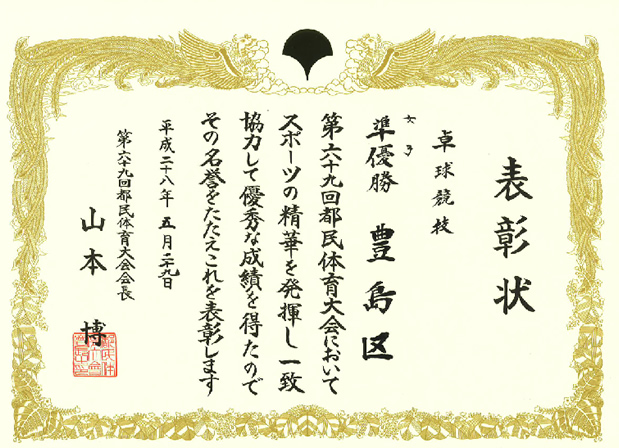 表彰状
卓球競技
女子
準優勝 豊島区
第六十九回都民体育大会において
スポーツの精華を発揮し一致
協力して優秀な成績を得たので
その名誉をたたえこれを表彰します
平成二十八年 五月二十九日
第六十九回都民体育大会会長
山本 博